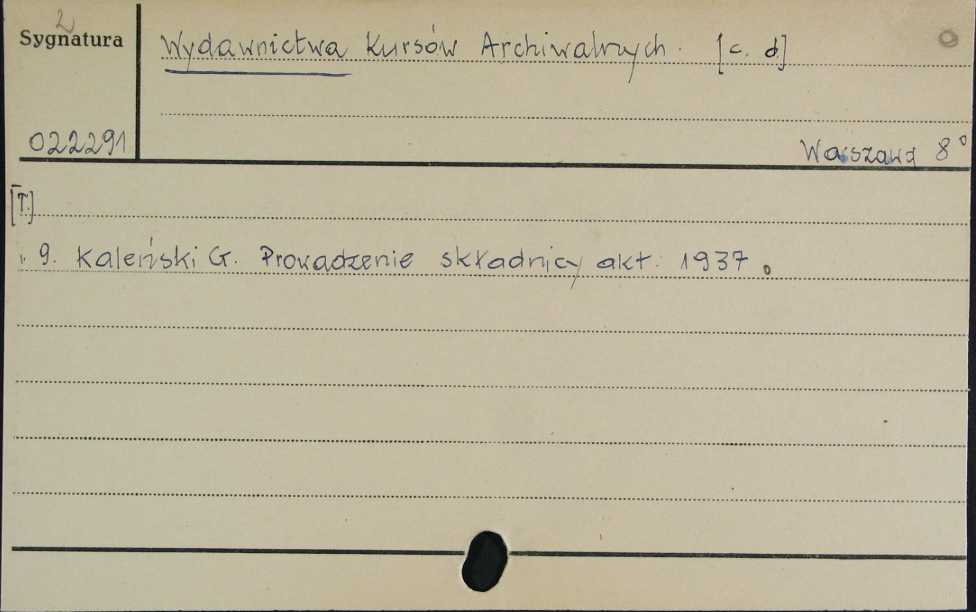 2
Sygnatura
Wydawnictwa Kursów Archiwalnych. [c. d.]
022291
Warszawa 8°
[T.]
9. Kaleński G. Prowadzenie składnicy akt. 1937.